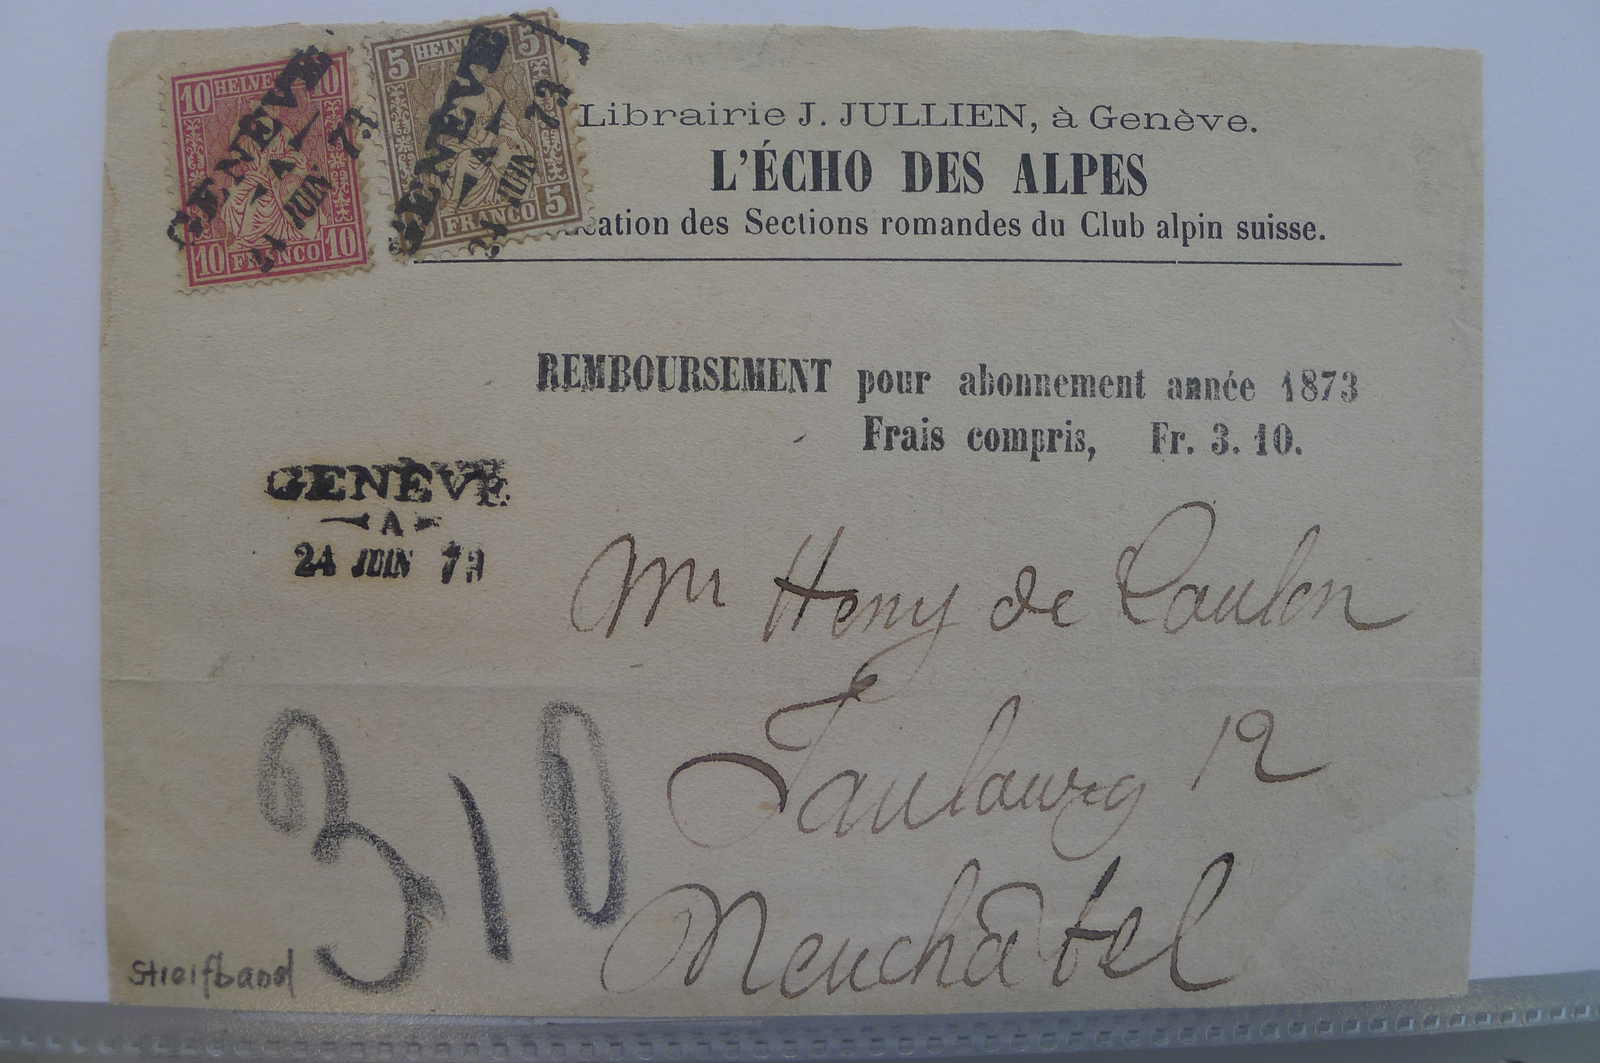 10 HELVETIA 10
10 FRANCO 10
GENÈVE
A
24 JUIN 73
5 HELVETIA 5
FRANCO 5
GENÈVE
A
24 JUIN 73
Librairie J. JULLIEN, à Genève.
L'ÉCHO DES ALPES
cation des Sections romandes du Club alpin suisse.
REMBOURSEMENT pour abonnement année 1873
Frais compris, Fr. 3.10.
GENÈVE
A
24 JUIN 73
Mr Henry de Coulon
Faubourg 12
Neuchâtel
310
Streifband